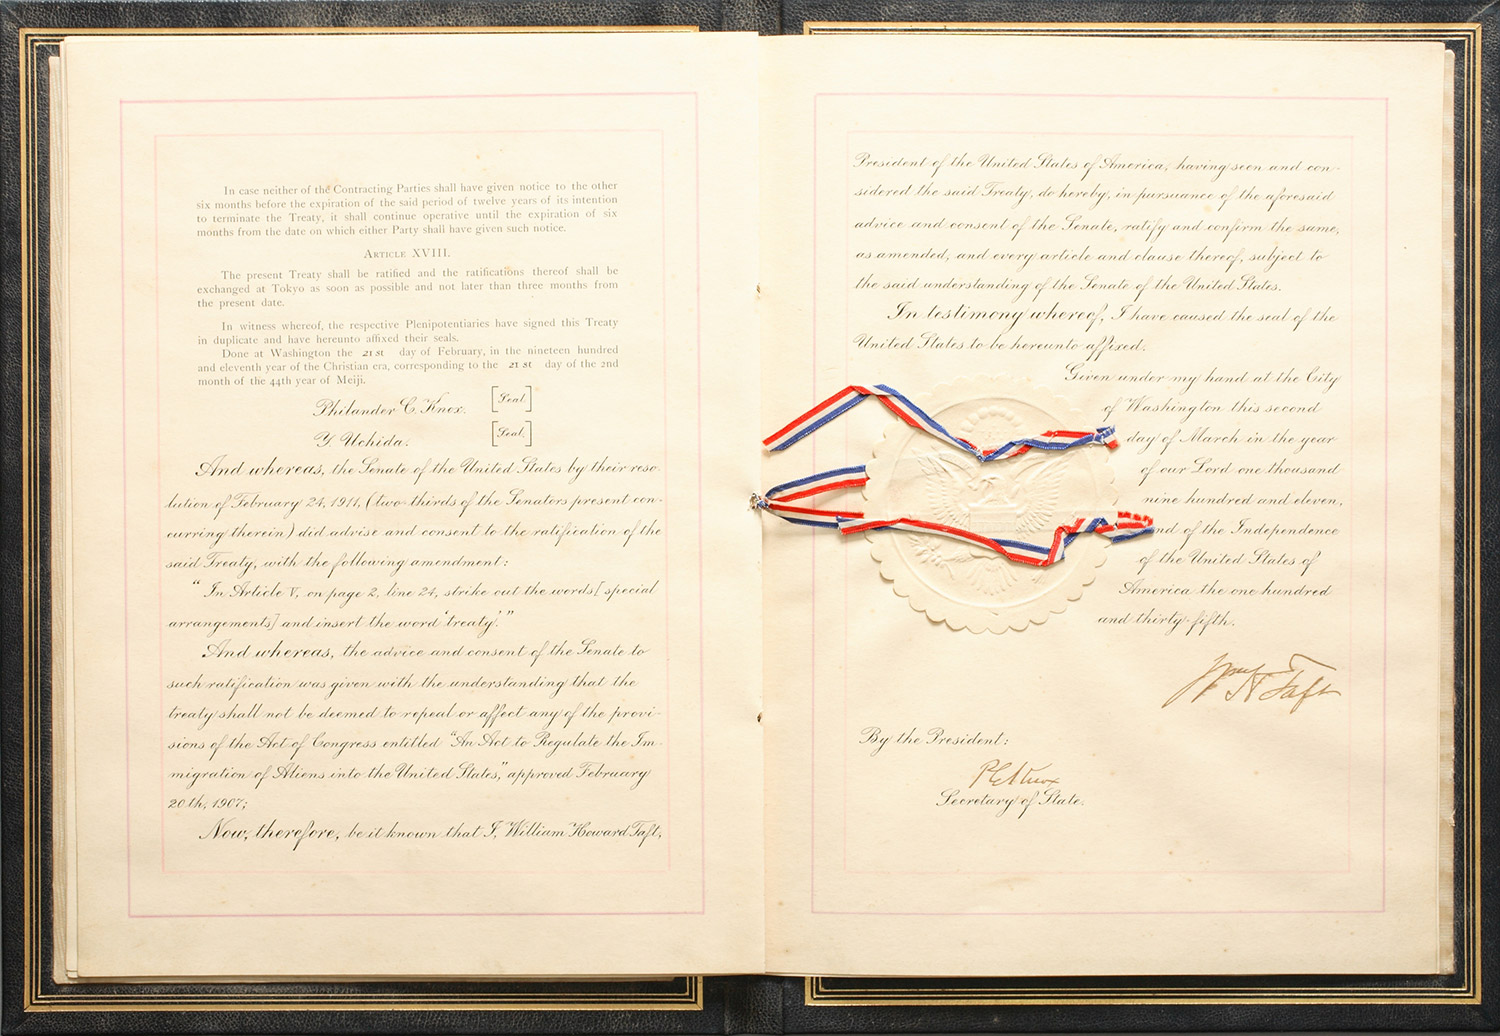 In case neither of the Contracting Parties shall have given notice to the other
six months before the expiration of the said period of twelve years of its intention
to terminate the Treaty, it shall continue operative until the expiration of six
months from the date on which either Party shall have given such notice.
Article XVIII.
The present Treaty shall be ratified and the ratifications thereof shall be
exchanged at Tokyo as soon as possible and not later than three months from
the present date.
In witness whereof, the respective Plenipotentiaries have signed this Treaty
in duplicate and have hereunto affixed their seals.
Done at Washington the 21st day of February, in the nineteen hundred
and eleventh year of the Christian era, corresponding to the 21st day of the 2nd
month of the 44th year of Meiji.
Philander C. Knox. [Seal]
Y. Uchida. [Seal]
And whereas, the Senate of the United States by their reso-
lution of February 24, 1911, (two-thirds of the Senators present con-
curring therein) did advise and consent to the ratification of the
said Treaty, with the following amendment:
"In Article V, on page 2, line 24, strike out the words [special
arrangements] and insert the word 'treaty'."
And whereas, the advice and consent of the Senate to
such ratification was given with the understanding that the
treaty shall not be deemed to repeal or affect any of the provi-
sions of the Act of Congress entitled "An Act to Regulate the Im-
migration of Aliens into the United States," approved February
20th, 1907;
Now, therefore, be it known that I, William Howard Taft,
President of the United States of America, having seen and con-
sidered the said Treaty, do hereby, in pursuance of the aforesaid
advice and consent of the Senate, ratify and confirm the same,
as amended, and every article and clause thereof, subject to
the said understanding of the Senate of the United States.
In testimony whereof, I have caused the seal of the
United States to be hereunto affixed.
Given under my hand at the City
of Washington this second
day of March in the year
of our Lord one thousand
nine hundred and eleven,
and of the Independence
of the United States of
America the one hundred
and thirty-fifth.
Wm H Taft
By the President:
P C Knox
Secretary of State.